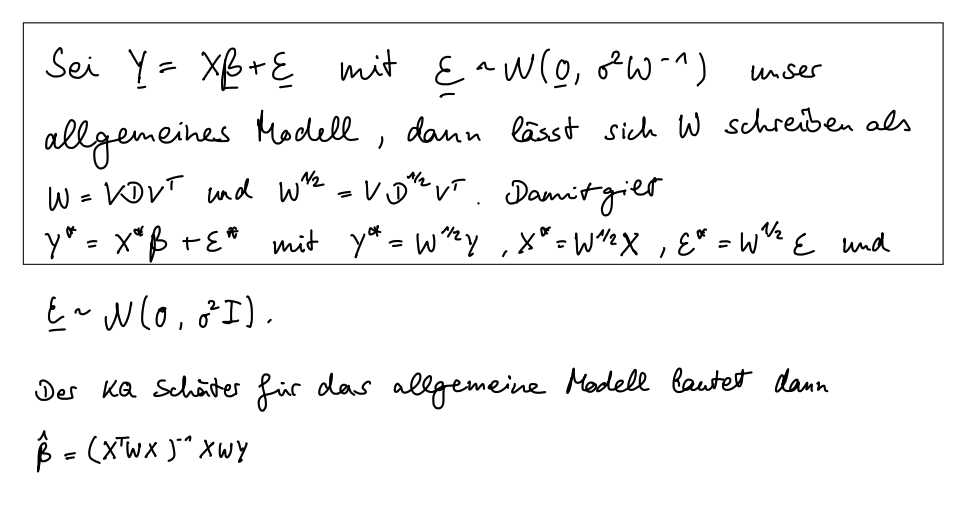 Sei Y = Xβ + ε mit ε ~ N(0, σ²W⁻¹) unser
allgemeines Modell, dann lässt sich W schreiben als
W = VDVᵀ und W^1/2 = VD^1/2Vᵀ. Damit gilt
Y* = X*β + ε* mit Y* = W^1/2Y, X* = W^1/2X, ε* = W^1/2 ε und
ε ~ N(0, σ²I).
Der KQ Schäter für das allgemeine Modell lautet dann
β̂ = (XᵀWX)⁻¹ XWY